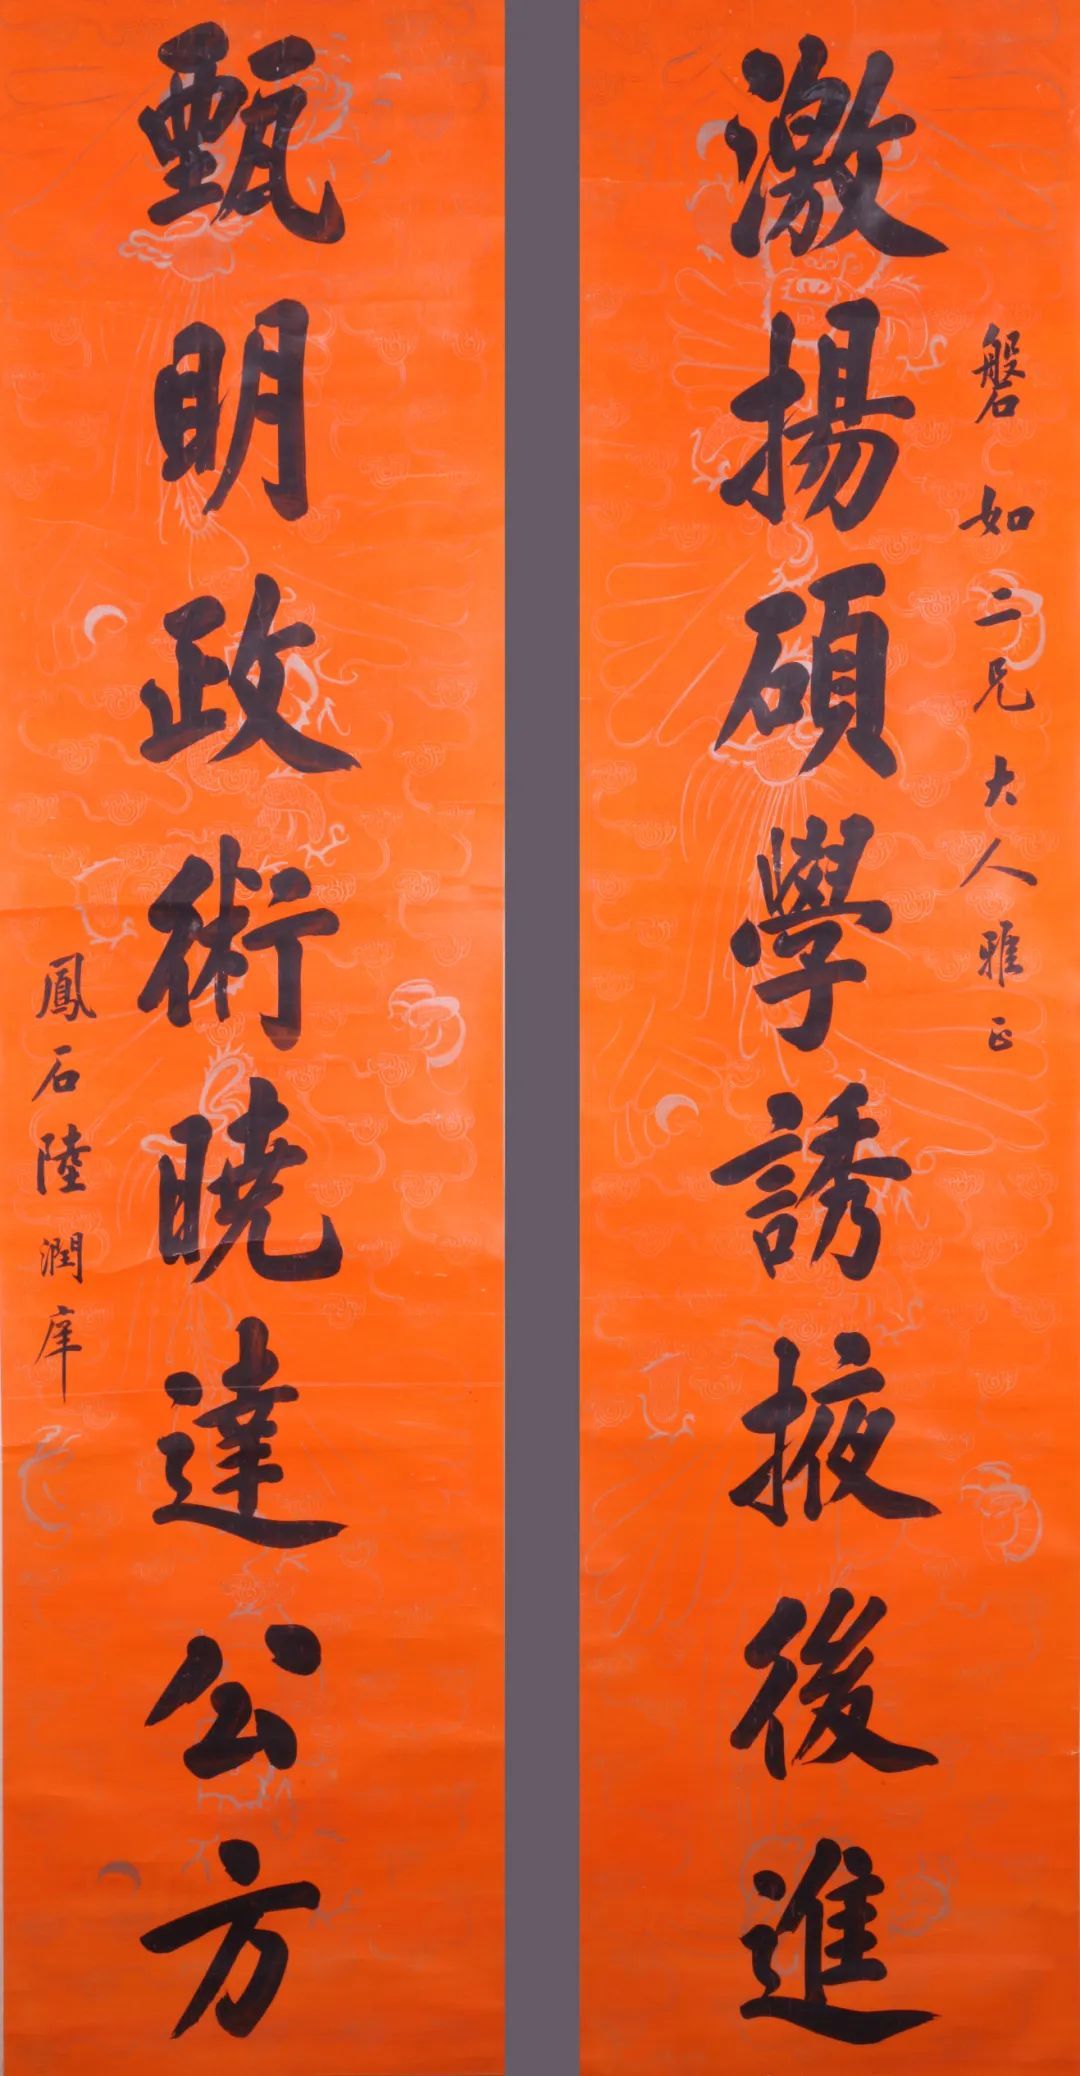 磐如二兄大人雅正
激揚碩學誘掖後進
甄明政術曉達公方
鳳石陸潤庠